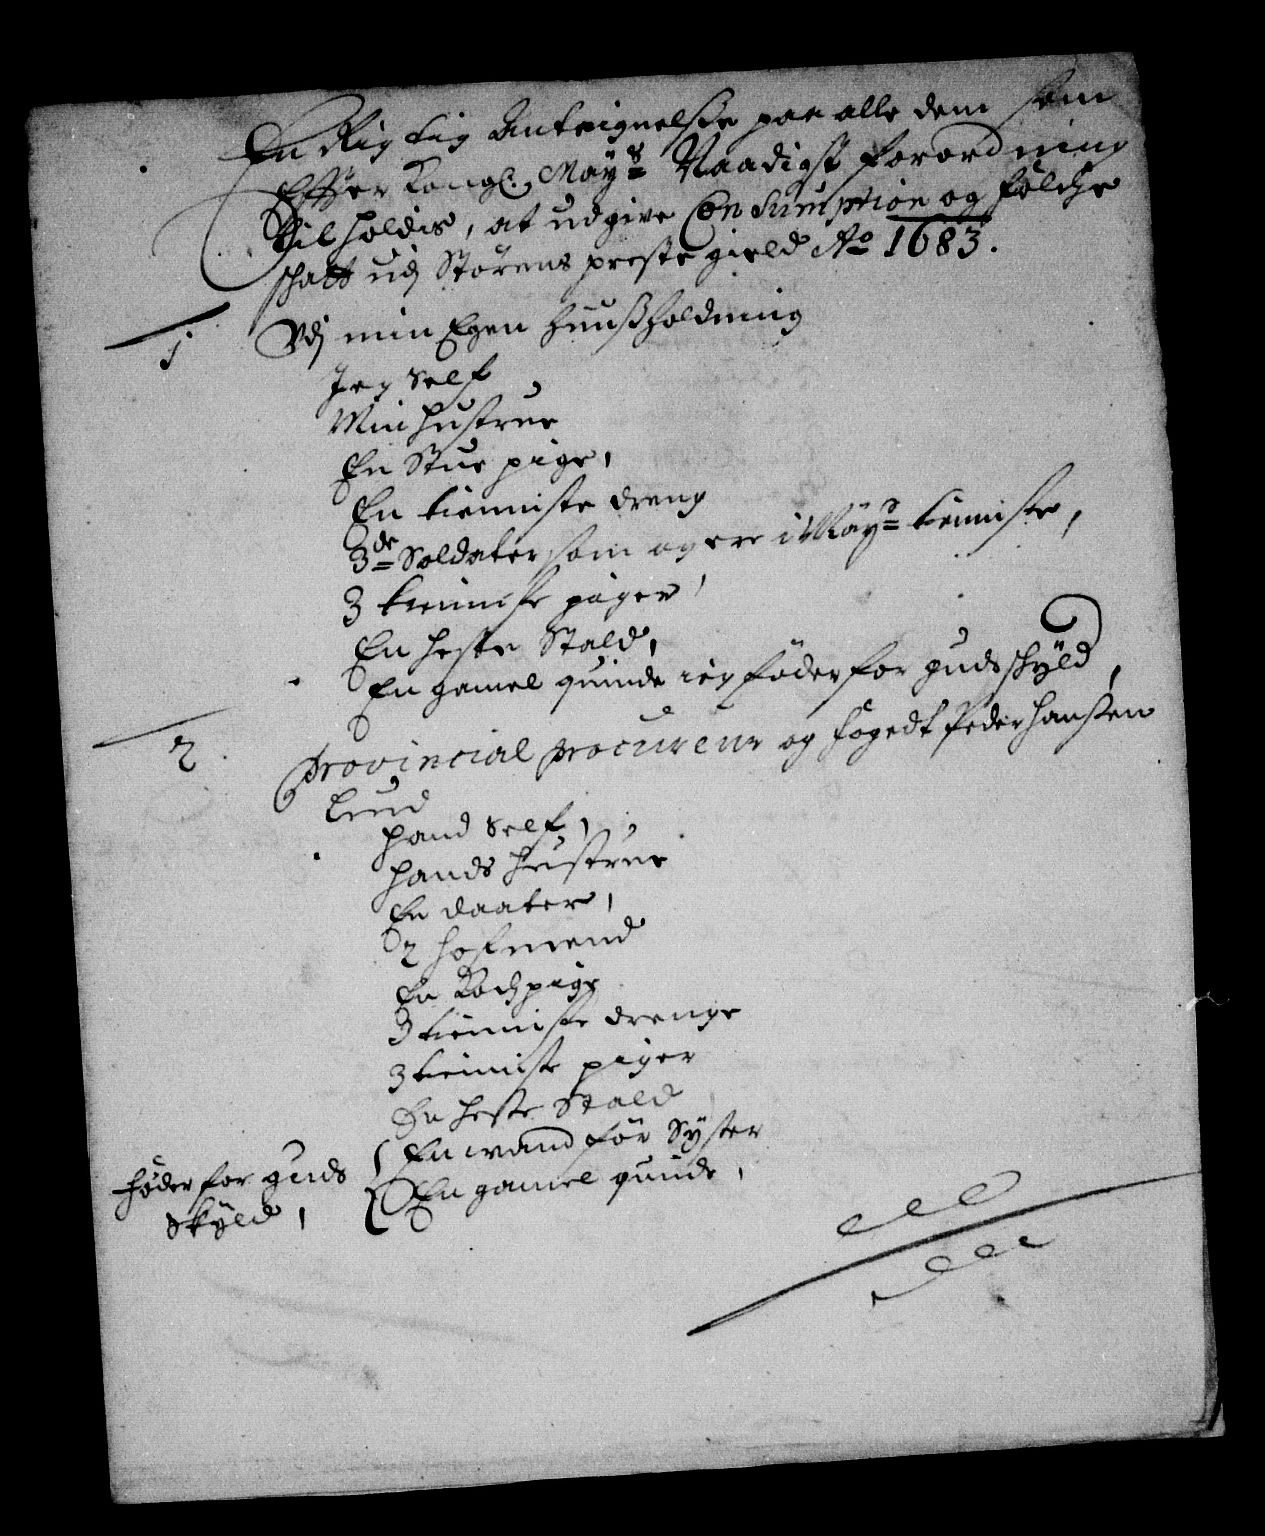 En Rigtig Anteignelse paa alle dem som
Effter Kongl. Mayß Naadigst forordning
tilholdis, at udgive Consumption og folche
schatt udj Störens prestegield Ao 1683.
1 Udj min Egen huußholdning
Jeg Self
Min hustrue
En Stue pige,
En tienniste dreng
3de Soldater som og ere i Mayß tienniste,
3 tienniste piger,
En heste Stald,
En gamel quinde ieg föder for guds schÿld,
2. Provincial procureur og fogedt Peder Hanßen
Lund
Hand Self,
Hands Hustrue
En daater,
2 hofmend
En Kochpige
3 tienniste drenge
3 tienniste piger
En heste Stald
En vandför Sÿster
föder for guds
En gamel quinde,
Skÿld,